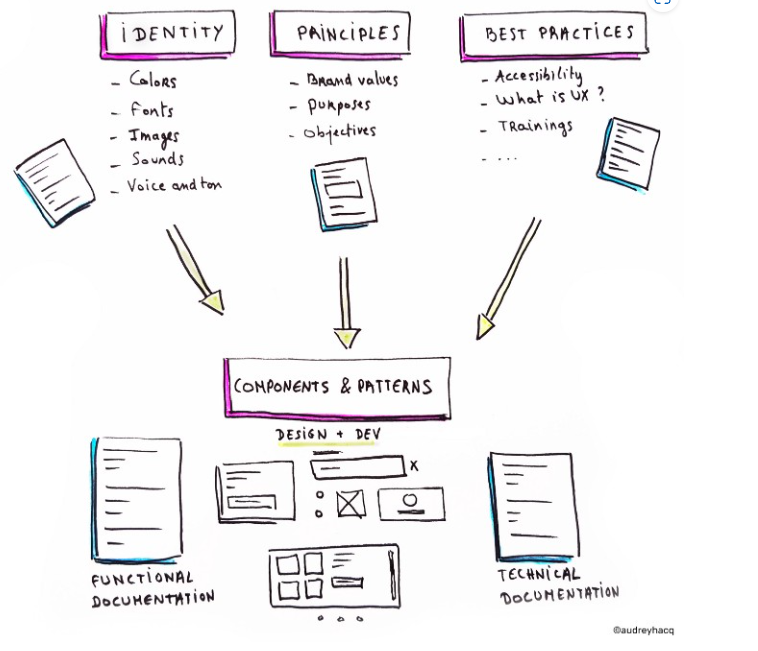 iDENTITY
- Colors
- Fonts
- Images
- Sounds
- Voice and ton
PRINCIPLES
- Brand values
- purposes
- objectives
BEST PRACTICES
- Accessibility
- What is UX ?
- TRainings
- ...
COMPONENTS & PATTERNS
DESIGN + DEV
x
FUNCTIONAL
DOCUMENTATION
TECHNICAL
DOCUMENTATION
©audreyhacq